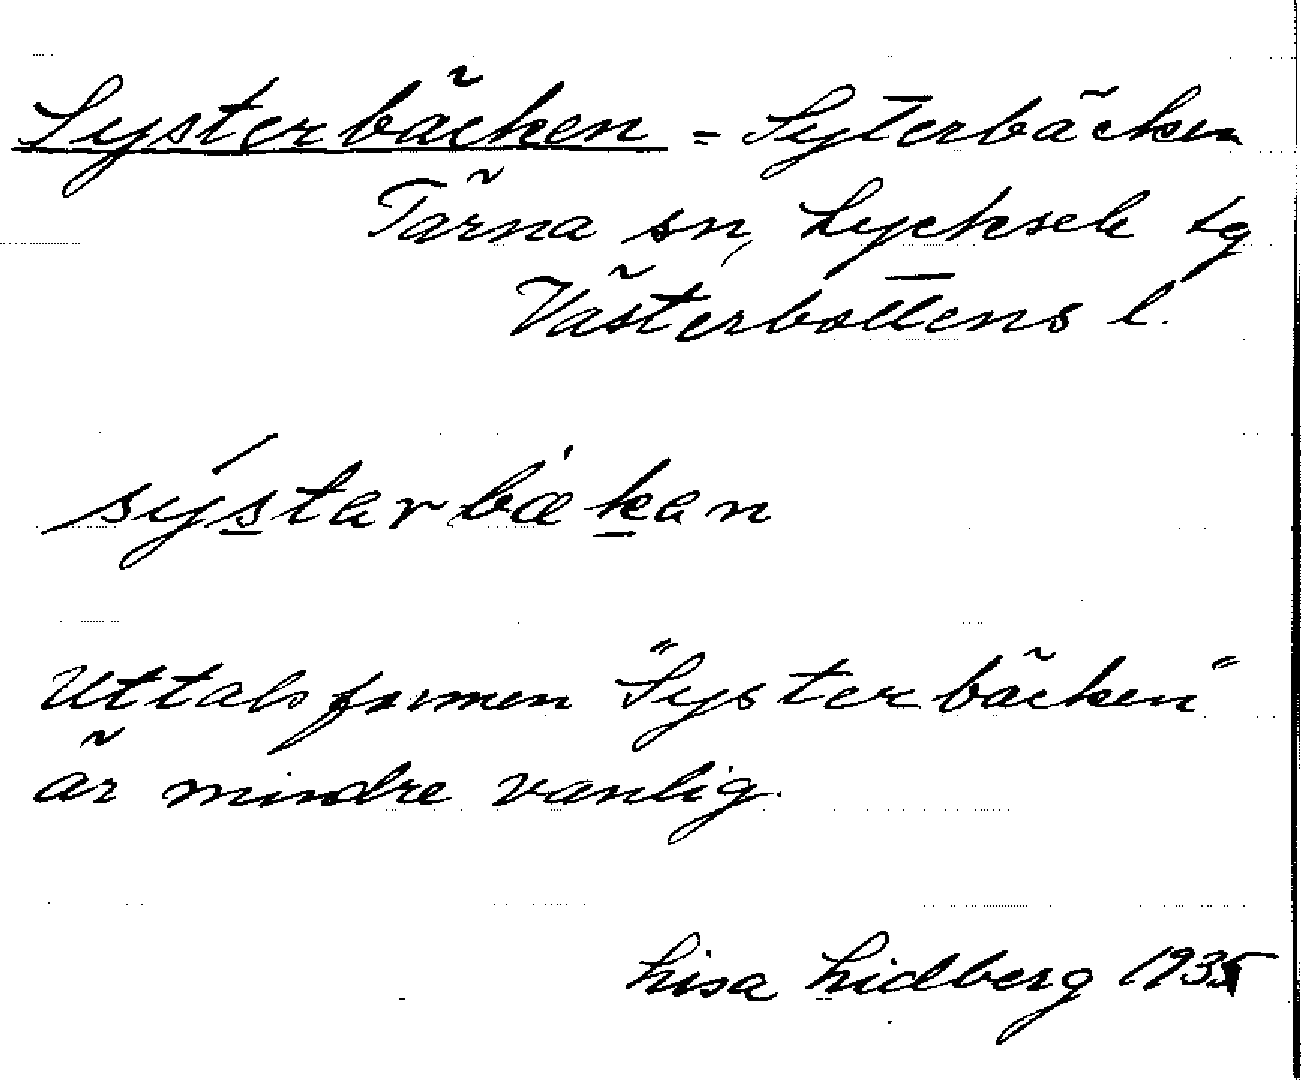 Systerbäcken = Syterbäcken
Tärna sn, Lycksele tg
Västerbottens l.
sýstarbækan
Uttalsformen "Systerbäcken"
är mindre vanlig.
Lisa Lidberg 1935